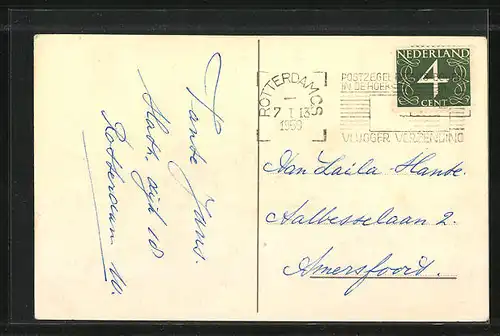 Tante Jans.
Rotterdam W.
ROTTERDAM CS
7 I 13
1959
POSTZEGEL
IN DE
VLUGGER VERZENDING
NEDERLAND
4
CENT
Aan Laila
Aalbesselaan 2.
Amersfoort.